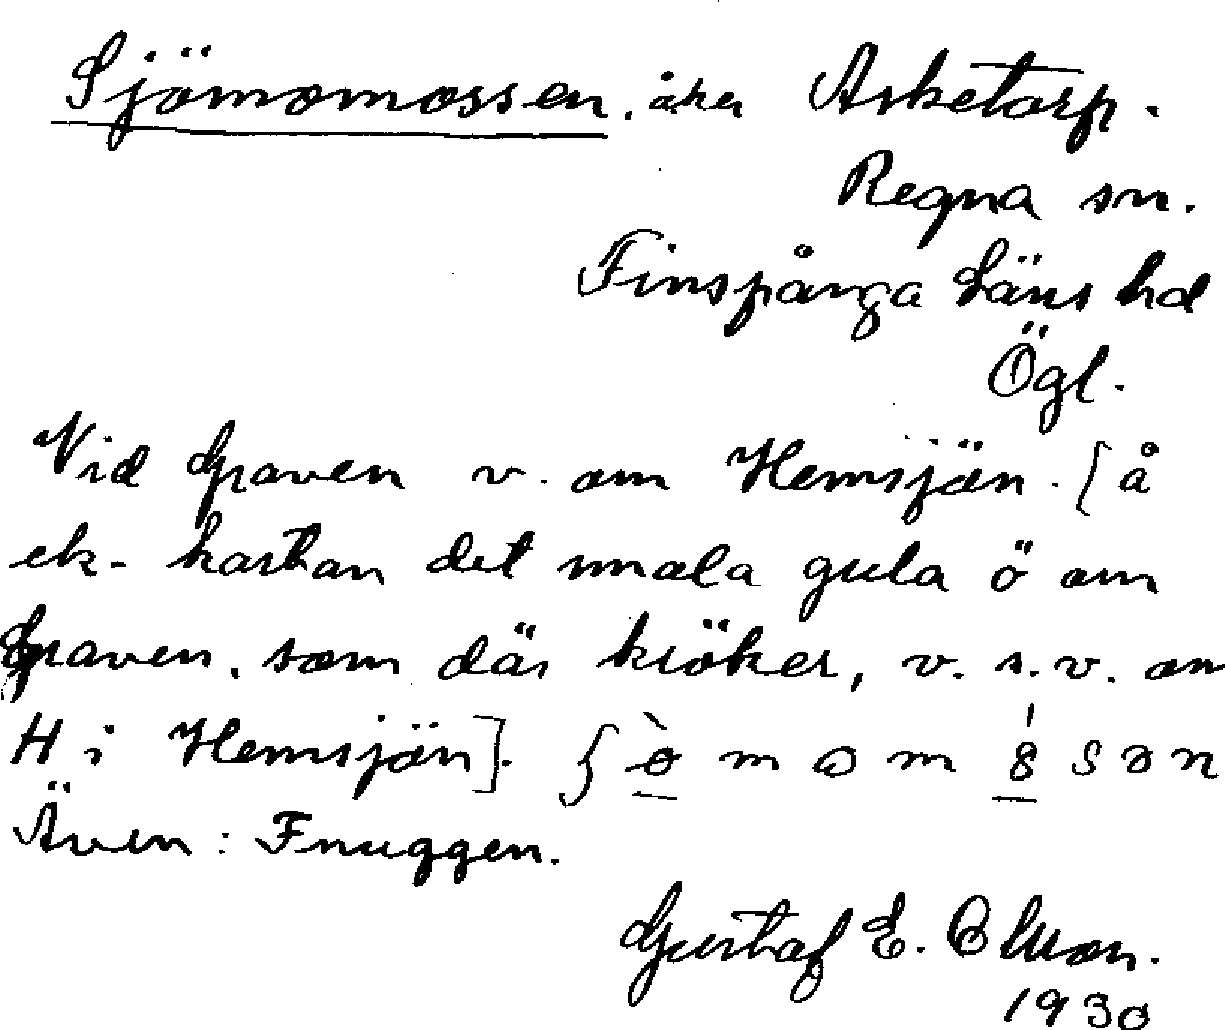 Sjömomossen, åker Asketorp.
Regna sn.
Finspånga läns hd
Ögl.
Vid Graven v. om Hemsjön. [å
ek-kartan det smala gula ö om
Graven, som där kröker, v.s.v. om
H i Hemsjön]. 
Även: Fnuggen.
Gustaf E. Olsson.
1930